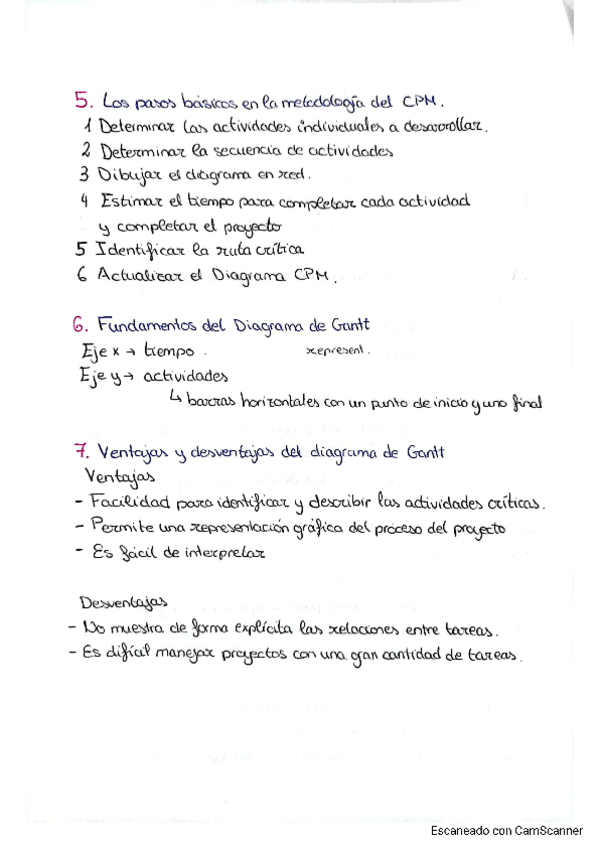 5. Los pasos básicos en la metodología del CPM.
1 Determinar las actividades individuales a desarrollar.
2 Determinar la secuencia de actividades
3 Dibujar el diagrama en red.
4 Estimar el tiempo para completar cada actividad
y completar el proyecto
5 Identificar la ruta crítica
6 Actualizar el Diagrama CPM.
6. Fundamentos del Diagrama de Gantt
Eje x → tiempo . represent.
Eje y → actividades
↳ barras horizontales con un punto de inicio y uno final
7. Ventajas y desventajas del diagrama de Gantt
Ventajas
- Facilidad para identificar y describir las actividades críticas.
- Permite una representación gráfica del proceso del proyecto
- Es fácil de interpretar
Desventajas
- No muestra de forma explícita las relaciones entre tareas.
- Es difícil manejar proyectos con una gran cantidad de tareas.
Escaneado con CamScanner